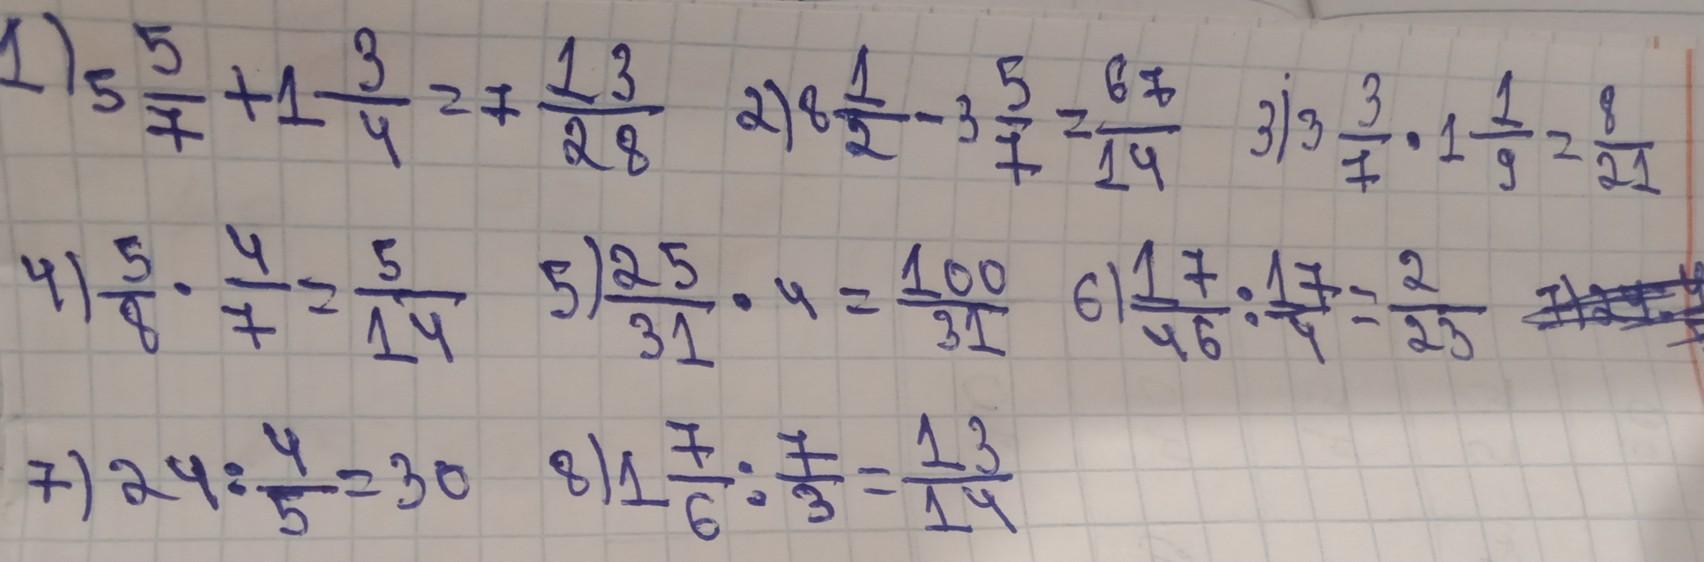 1) 5 5/7 + 1 3/4 = 7 13/28 2) 8 1/2 - 3 5/7 = 67/14 3) 3 3/7 · 1 1/9 = 8/21
4) 5/8 · 4/7 = 5/14 5) 25/31 · 4 = 100/31 6) 17/46 : 17/4 = 2/23
7) 24 : 4/5 = 30 8) 1 7/6 : 7/3 = 13/14